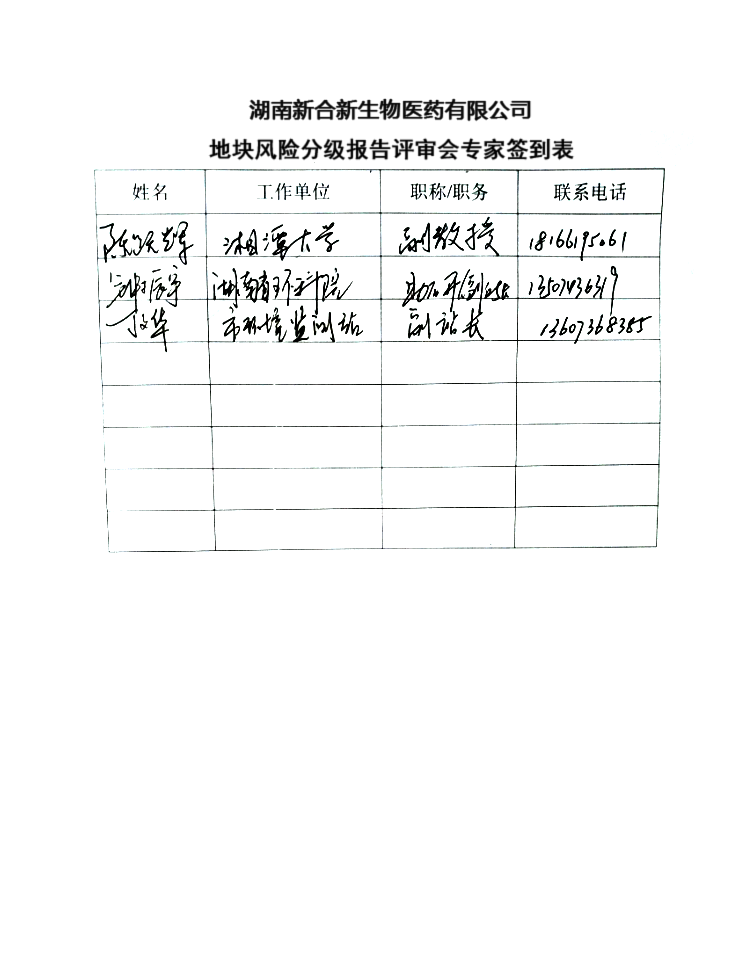 湖南新合新生物医药有限公司
地块风险分级报告评审会专家签到表
姓名 工作单位 职称/职务 联系电话
陈跃辉 湘潭大学 副教授 18166195061
湖南省环科院 13507436319
丁文华 市环境监测站 副站长 13607368385